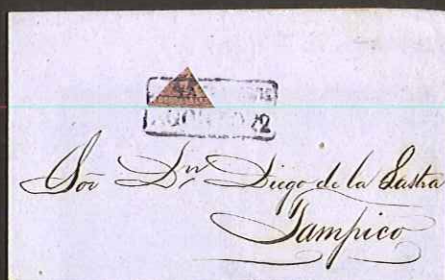 AGOSTO 22
Sor Dn Diego de la Lastra
Tampico